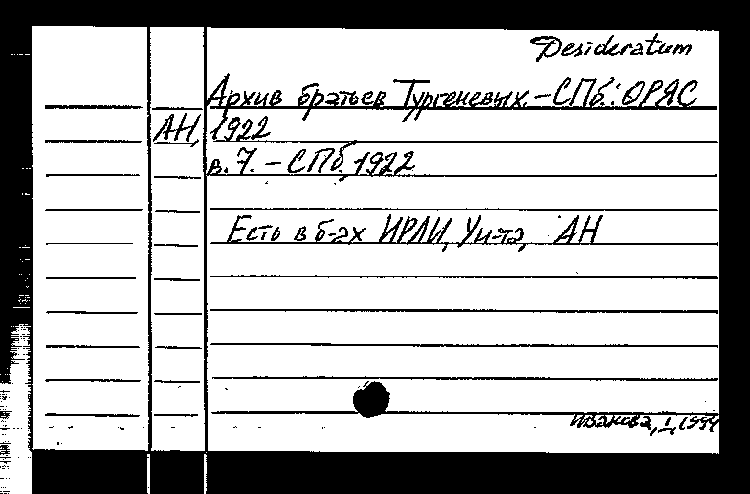 Desideratum
Архив братьев Тургеневых. – СПб.: ОРЯС
АН, 1922
в. 7. – СПб, 1922
Есть в б-ах ИРЛИ, Ун-та, АН
Иванова, I, 1994